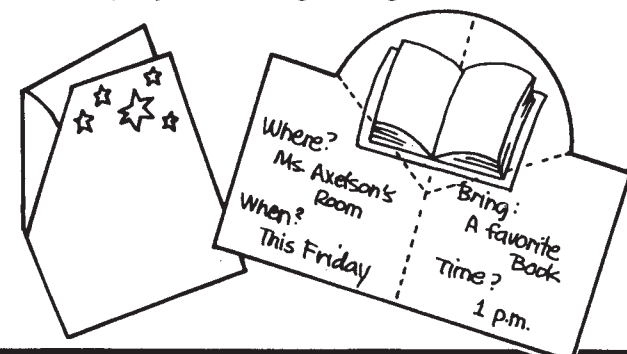 Where?
Ms. Axelson's
Room
When?
This Friday
Bring:
A favorite
Book
Time?
1 p.m.